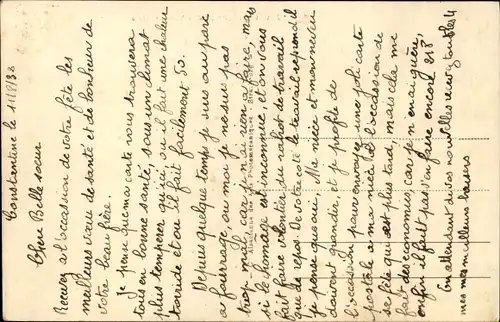 Constantine le 11/9/38
Chère Belle soeur
Recevez a l'occassion de votre fête les
meilleurs voeux de santé et de bonheur de
votre beau frère.
Je pense que ma carte vous trouvera
tous en bonne santé, sous un climat
plus tempérer qu'ici, ou il fait une chaleur
torride et ou il fait facilement 50.
Depuis quelque temps je suis au parc
a fourrage, ou moi je ne suis pas
trop mal, car rien a faire, mais
si le chomage est inconnue, et on vous
fait faire volontier du rabiot de travail
que de repos. De votre coté le travail reprend il
je pense que oui, Ma nièce et mon neveu
doivent grandir, et je profite de
l'occassion pour envoyez une joli carte
postale a ma nièce a l'occassion de
sa fête qui est plus tard, mais cela me
fait des économies, car je n'en ai guère,
enfin il faut pas s'en faire encore 218.
En attendant de vos nouvelles recevez tous les 4
mes meilleurs baisers